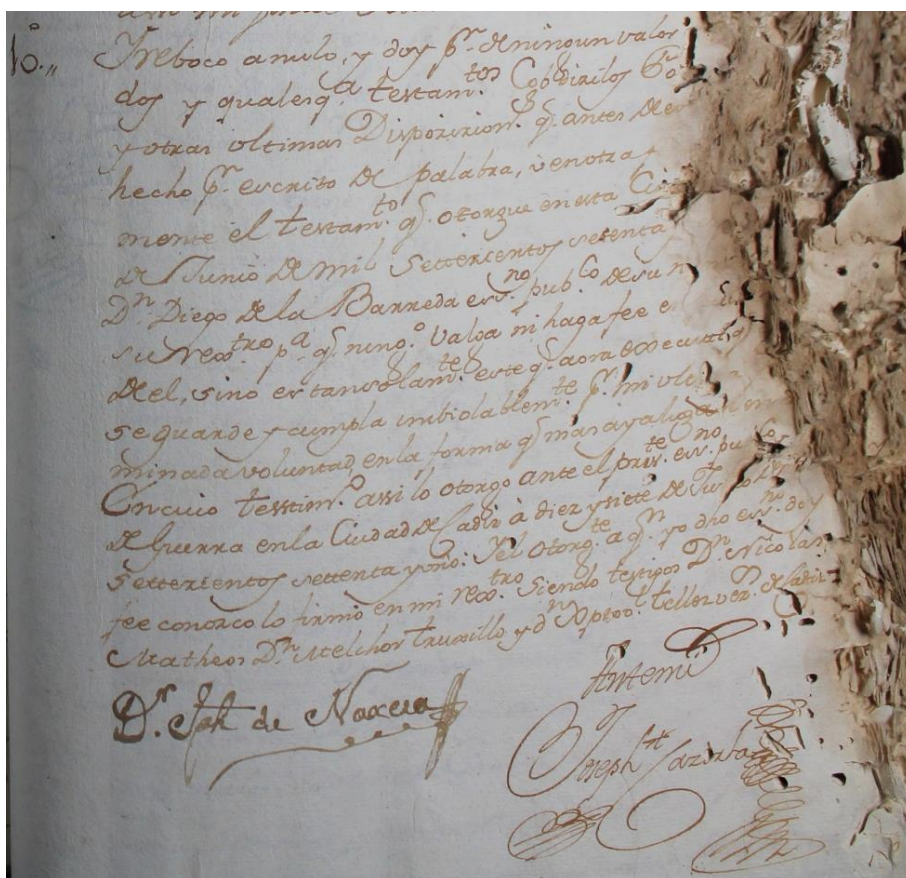 10.,,
Y reboco anulo, y doy pr. de ningun valor
dos y qualesqa. testamtos. Cobdicilos
y otras ultimas Disposicions. q. antes
hecho pr. escrito de palabra, ù en otra
mente el testamto. q. otorgue en esta
de Junio de mil Settecientos setenta
Dn. Diego de la Barreda essno. pubco. de su
su rextro. pa. q. ningo. Valga ni haga fee
de el, sino es tan solamte. este q. aora
se guarde y cumpla imbiolablemte. pr. mi
minada voluntad, en la forma q. mas aya lugar
En cuio testimo. assi lo otorgo ante el preste. essno. puco.
de Guerra en la Ciudad de Cadiz à diez y siete de
settecientos settenta y Y el otorgte. a qn. yo dho essno. doy
fee conozco lo firmó en mi rextro. siendo testigos Dn. Nicolas
Matheos Dn. Melchor truxillo, y dn. tellez de Cadiz
Antemi
Dn. Jph de Narcia
Joseph